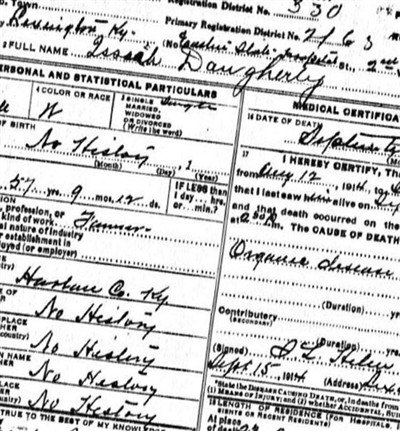 Town
Registration District No. 330
Primary Registration District No. 2163
Lexington Ky. (No. Eastern State Hospital St., 2nd
2 FULL NAME Issiah Daugherty
PERSONAL AND STATISTICAL PARTICULARS
4 COLOR OR RACE
W
5 SINGLE, MARRIED, WIDOWED OR DIVORCED (Write the word)
Single
OF BIRTH
No History, 1
(Month) (Day) (Year)
57 yrs. 9 mos. 12 ds.
IF LESS than
1 day... hrs.
or... min.?
profession, or
kind of work
Farmer
nature of industry
establishment in
employed (or employer)
Harlan Co. Ky
No History
No History
No History
No History
TRUE TO THE BEST OF MY KNOWLEDGE
MEDICAL CERTIFICA
16 DATE OF DEATH
17
I HEREBY CERTIFY, Tha
from Aug 12, 1914, to
that I last saw him alive on Sep
and that death occurred on the
at 2 50 P m. The CAUSE OF DEATH
Organic disease
(Duration) yrs
Contributory
(SECONDARY)
(Duration) yr
(Signed)
Sept. 15, 1914 (Address)
State the DISEASE CAUSING DEATH, or, in deaths from
MEANS OF INJURY; and (2) whether ACCIDENTAL, SUI
18 LENGTH OF RESIDENCE (FOR HOSPITALS,
SIENTS OR RECENT RESIDENTS)
At place
of death